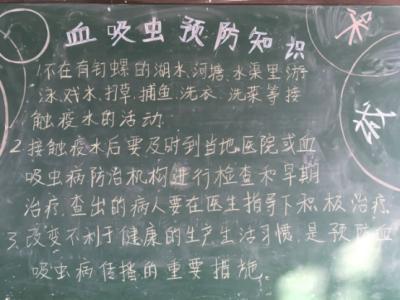 血吸虫预防知识
1.不在有钉螺的湖水、河塘、水渠里游
泳、戏水、打草、捕鱼、洗衣、洗菜等接
触疫水的活动.
2.接触疫水后要及时到当地医院或血
吸虫病防治机构进行检查和早期
治疗.查出的病人要在医生指导下积极治疗.
3.改变不利于健康的生产生活习惯,是预防血
吸虫病传播的重要措施。